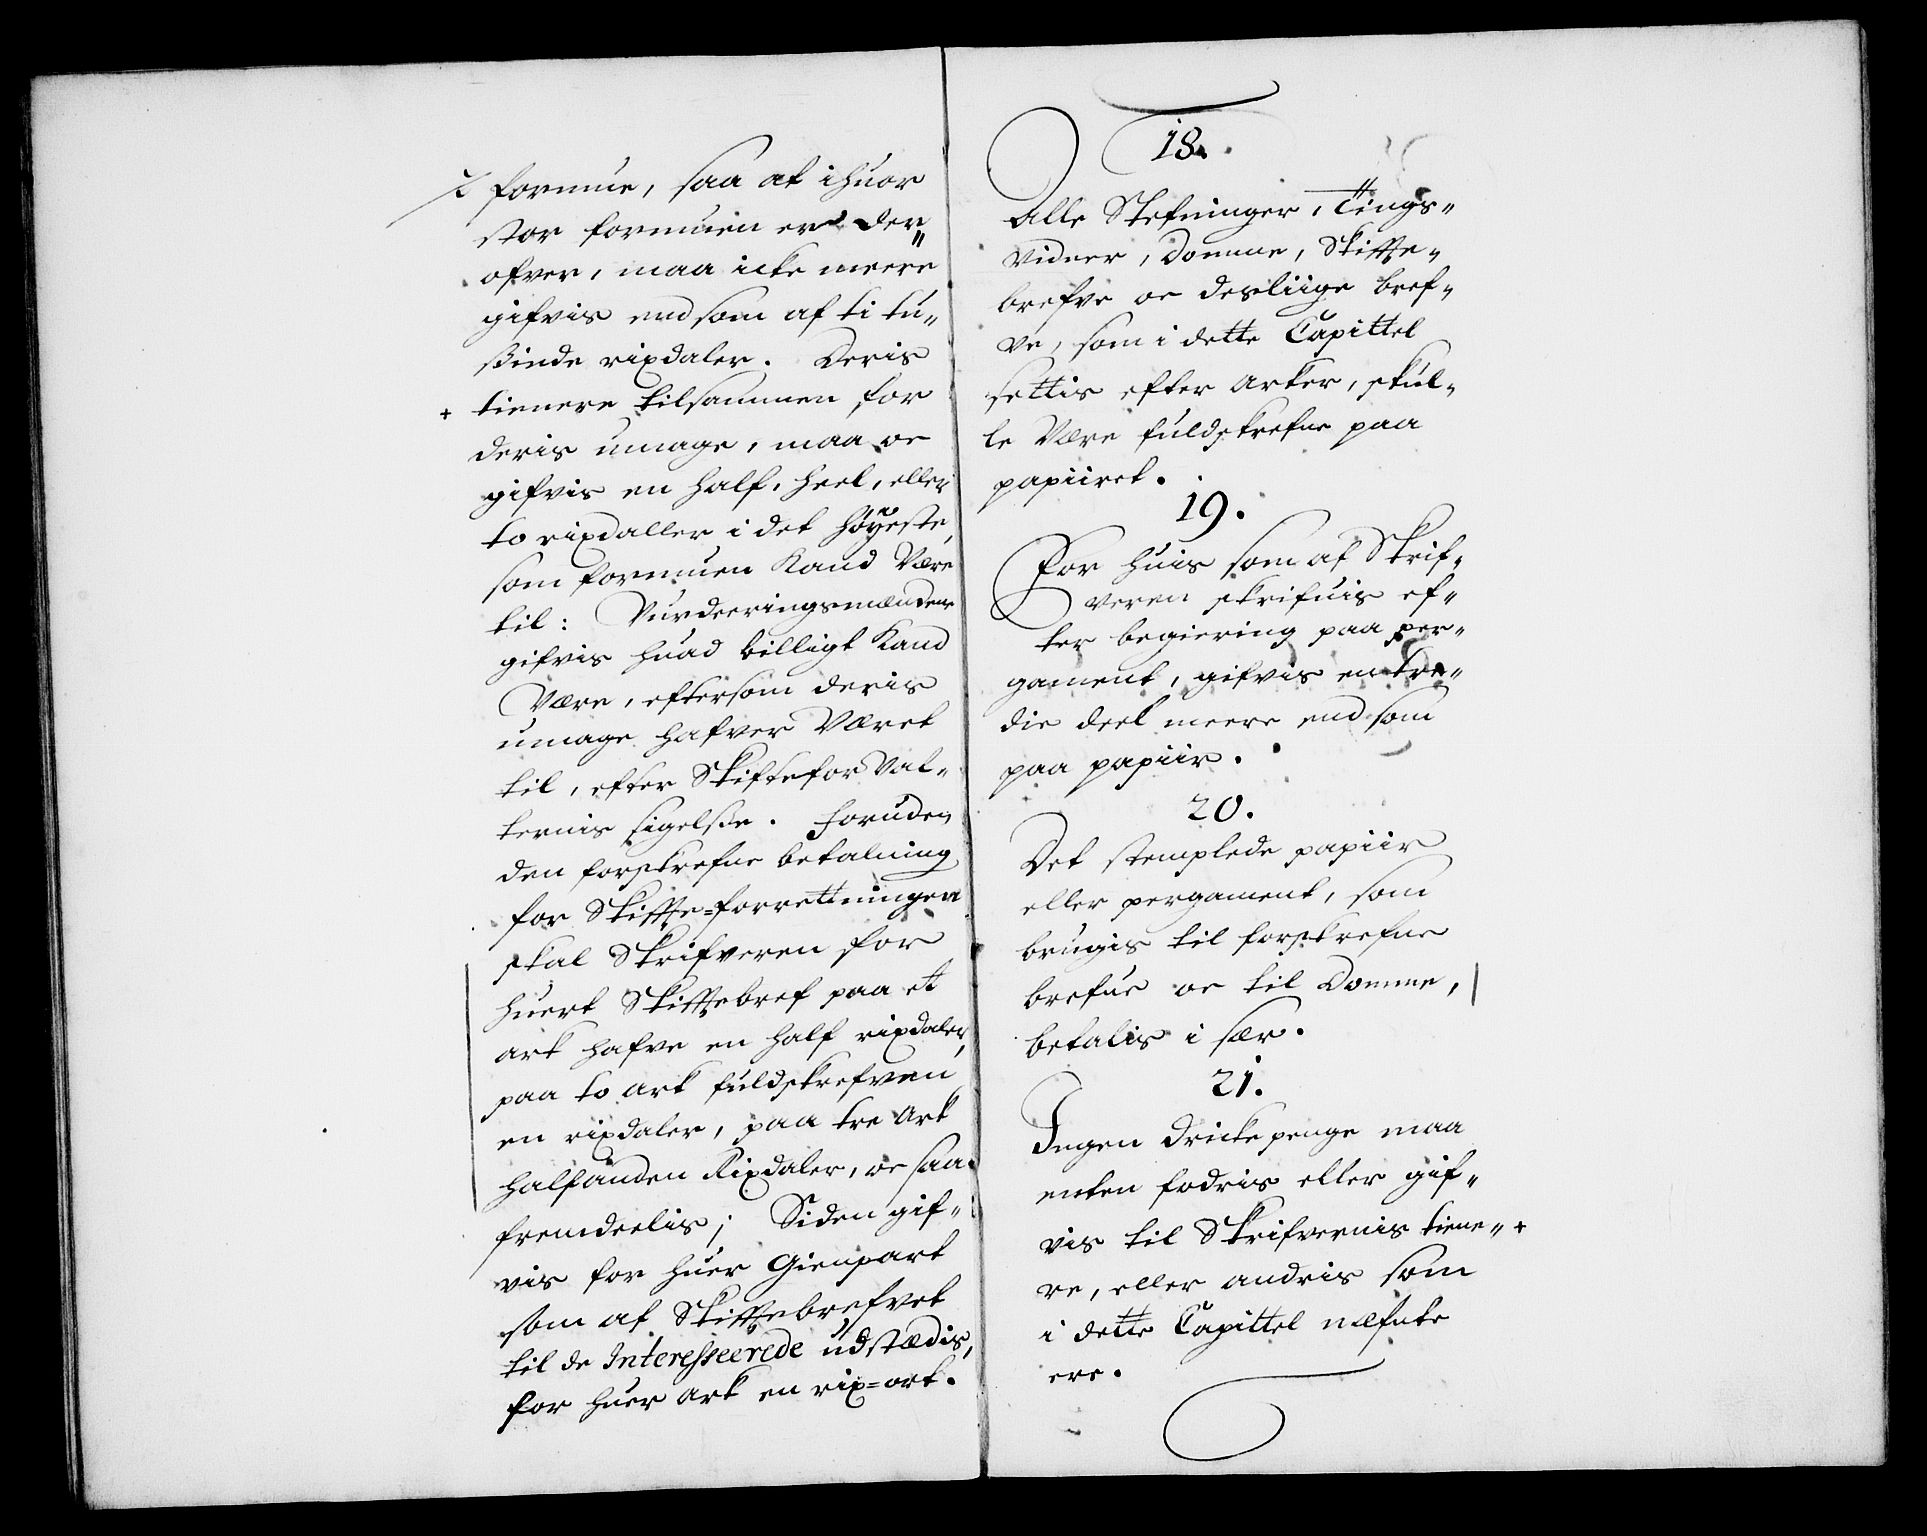 formue, saa at ihuor
stor formuen er der
ofver, maa icke meere
gifvis end som af ti tu„
sinde rixdaler. Deris
+ tienere tilsammen for
deris umage, maa oc
gifvis en half, heel, eller
to rixdaller i det høyeste,
som formuen Kand Være
til: Vurdeeringsmændene
gifvis huad billigt Kand
Være, eftersom deris
umage hafver Været
til, efter Skifteforval„
ternis sigelsse. Foruden
den forskrefne betalning
for Skifte=forrettningen
skal Skrifveren for
huert Skiftebref paa et
ark hafve en half rixdaler,
paa to ark fuldskrefven
en rixdaler, paa tre Ark
halfanden Rixdaler, oc saa
fremdeelis; Siden gif„
vis for huer Gienpart
som af Skiftebrefvet
til de Interesseerede udstædis,
for huer ark en rix=ort.
18.
Alle Stefninger, Tings„
vidner, Domme, Skifte„
brefve oc desliige bref„
ve, som i dette Capittel
settis efter Arker, skul„
le Være fuldskrefne paa
papiiret.
19.
For huis som af Skrif„
veren skrifuis ef„
ter begiering paa per„
gament, gifvis en tre„
die deel meere end som
paa papiir.
20.
Det stemplede papiir
eller pergament, som
brugis til forskrefne
brefue oc til Domme,
betalis i sær.
21.
Ingen Drickepenge maa
enten fodris eller gif„
vis til Skrifvernis tiene„ +
re, eller andris som
i dette Capittel næfnte
ere.